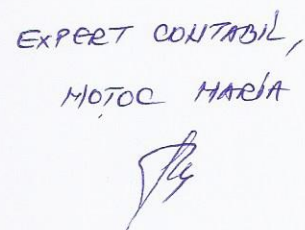 EXPERT CONTABIL,
MOȚOC MARIA